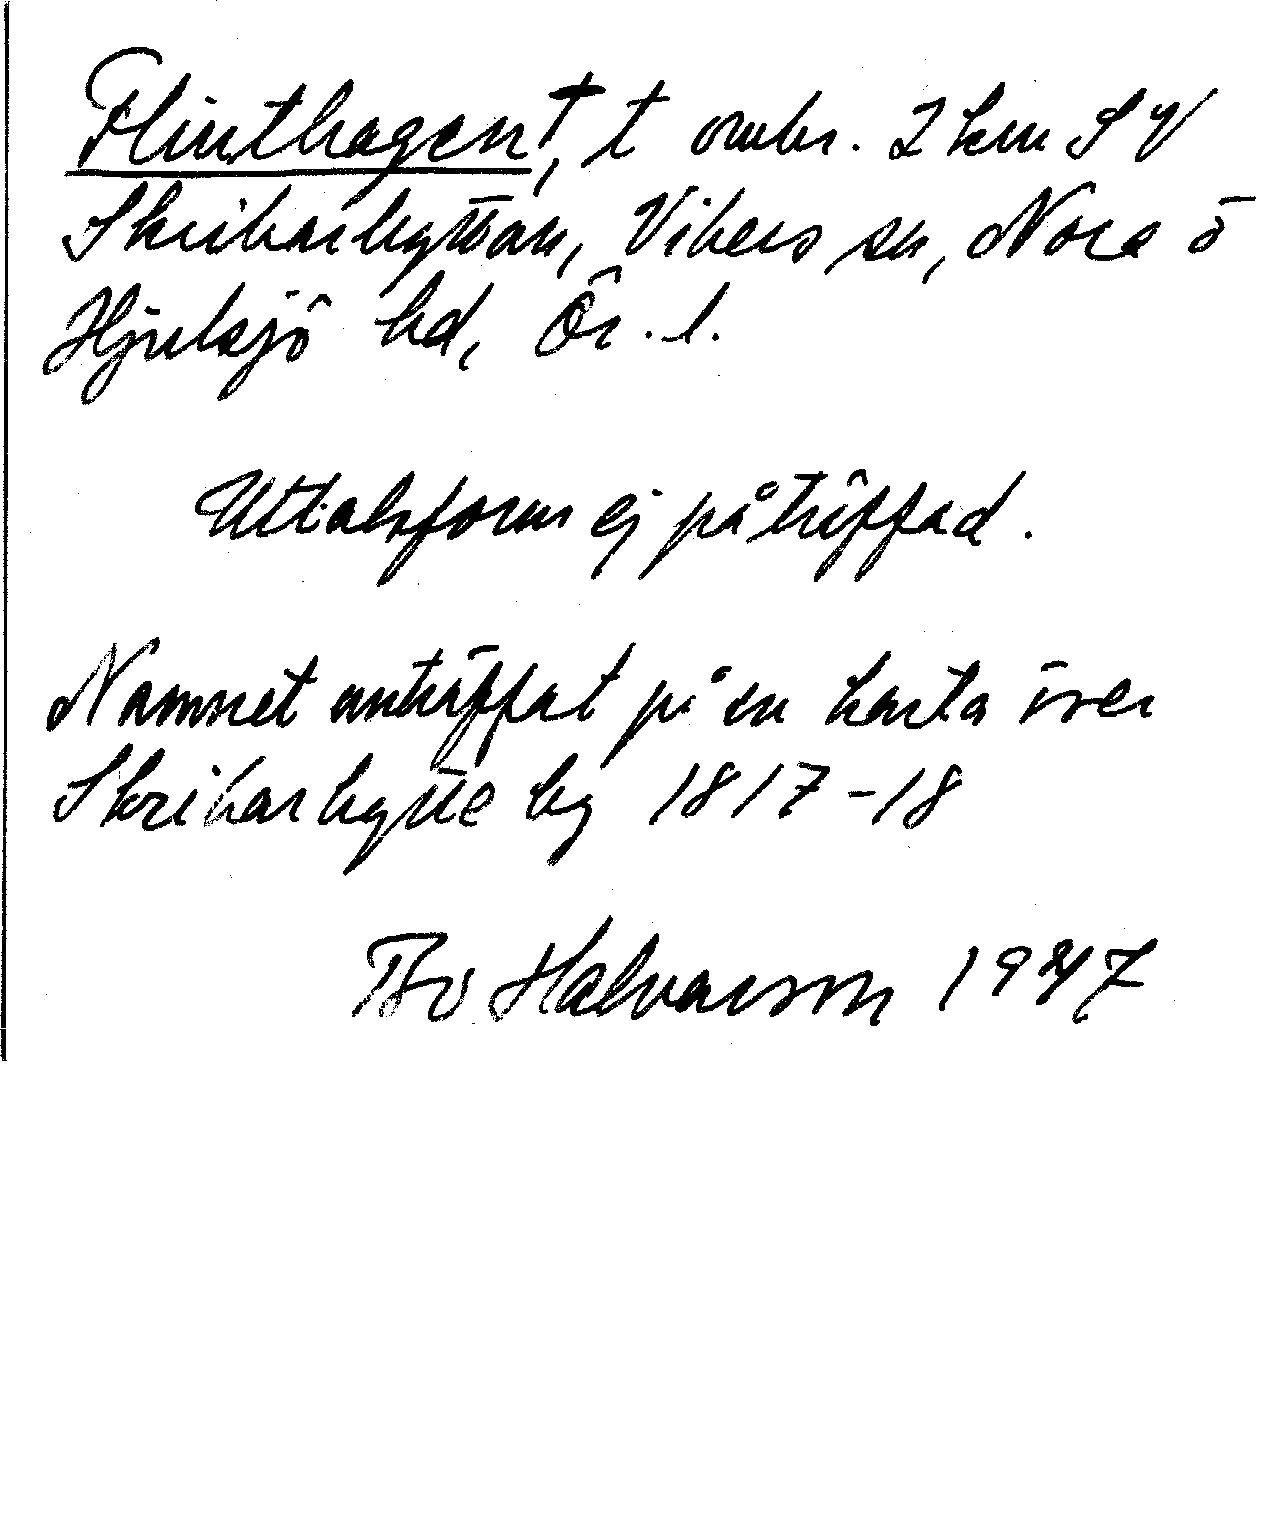 Flinthagen†, t omkr. 2 km SV
Skribarhyttan, Vikers sn, Nora o
Hjulsjö hd, Ör. l.
Uttalsform ej påträffad.
Namnet anträffat på en karta över
Skribarhytte by 1817-18
Bo Halvarson 1947